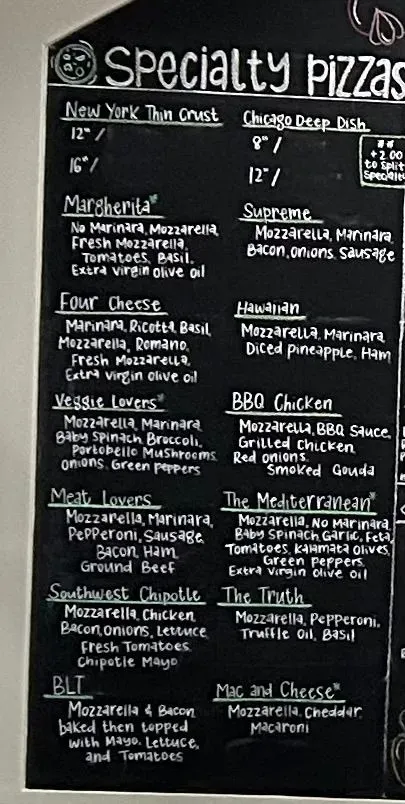 Specialty Pizzas
New York Thin Crust
12" /
16" /
Chicago Deep Dish
8" /
12" /
**
+2.00
to Split
Specialty
Margherita*
No Marinara, Mozzarella,
Fresh Mozzarella,
Tomatoes, Basil,
Extra virgin olive oil
Supreme
Mozzarella, Marinara
Bacon, onions, Sausage
Four Cheese
Marinara, Ricotta, Basil,
Mozzarella, Romano,
Fresh Mozzarella,
Extra virgin olive oil
Hawaiian
Mozzarella, Marinara
Diced pineapple, Ham
Veggie Lovers*
Mozzarella, Marinara
Baby Spinach, Broccoli,
Portobello Mushrooms
Onions, Green Peppers
BBQ Chicken
Mozzarella, BBQ Sauce,
Grilled Chicken
Red onions,
Smoked Gouda
Meat Lovers
Mozzarella, Marinara,
Pepperoni, Sausage
Bacon, Ham,
Ground Beef
The Mediterranean*
Mozzarella, No Marinara,
Baby Spinach, Garlic, Feta,
Tomatoes, Kalamata olives,
Green peppers,
Extra Virgin olive oil
Southwest Chipotle
Mozzarella, Chicken,
Bacon, onions, Lettuce
Fresh Tomatoes
Chipotle Mayo
The Truth
Mozzarella, Pepperoni,
Truffle Oil, Basil
BLT
Mozzarella & Bacon
baked then topped
with Mayo, Lettuce,
and Tomatoes
Mac and Cheese*
Mozzarella, Cheddar
Macaroni